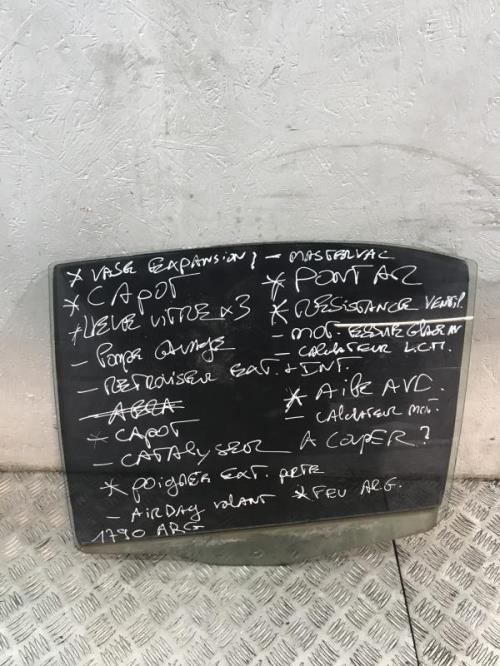 * VASE EXPANSION? - MASTERVAC
* CAPOT
* PONT AR
* LEVE VITRE x3
* RESISTANCE VENTIL
- MOT. ESSUIE GLACE AV
- POMPE
- CALCULATEUR L.C.M.
- RETROVISEUR EXT. + INT.
- ABRA
* AILE AVD.
* CAPOT
- CALCULATEUR MOT.
- CATALYSEUR A COUPER?
* POIGNEE EXT. PRTE
- AIRBAG VOLANT * FEU ARG.
1790 ARG